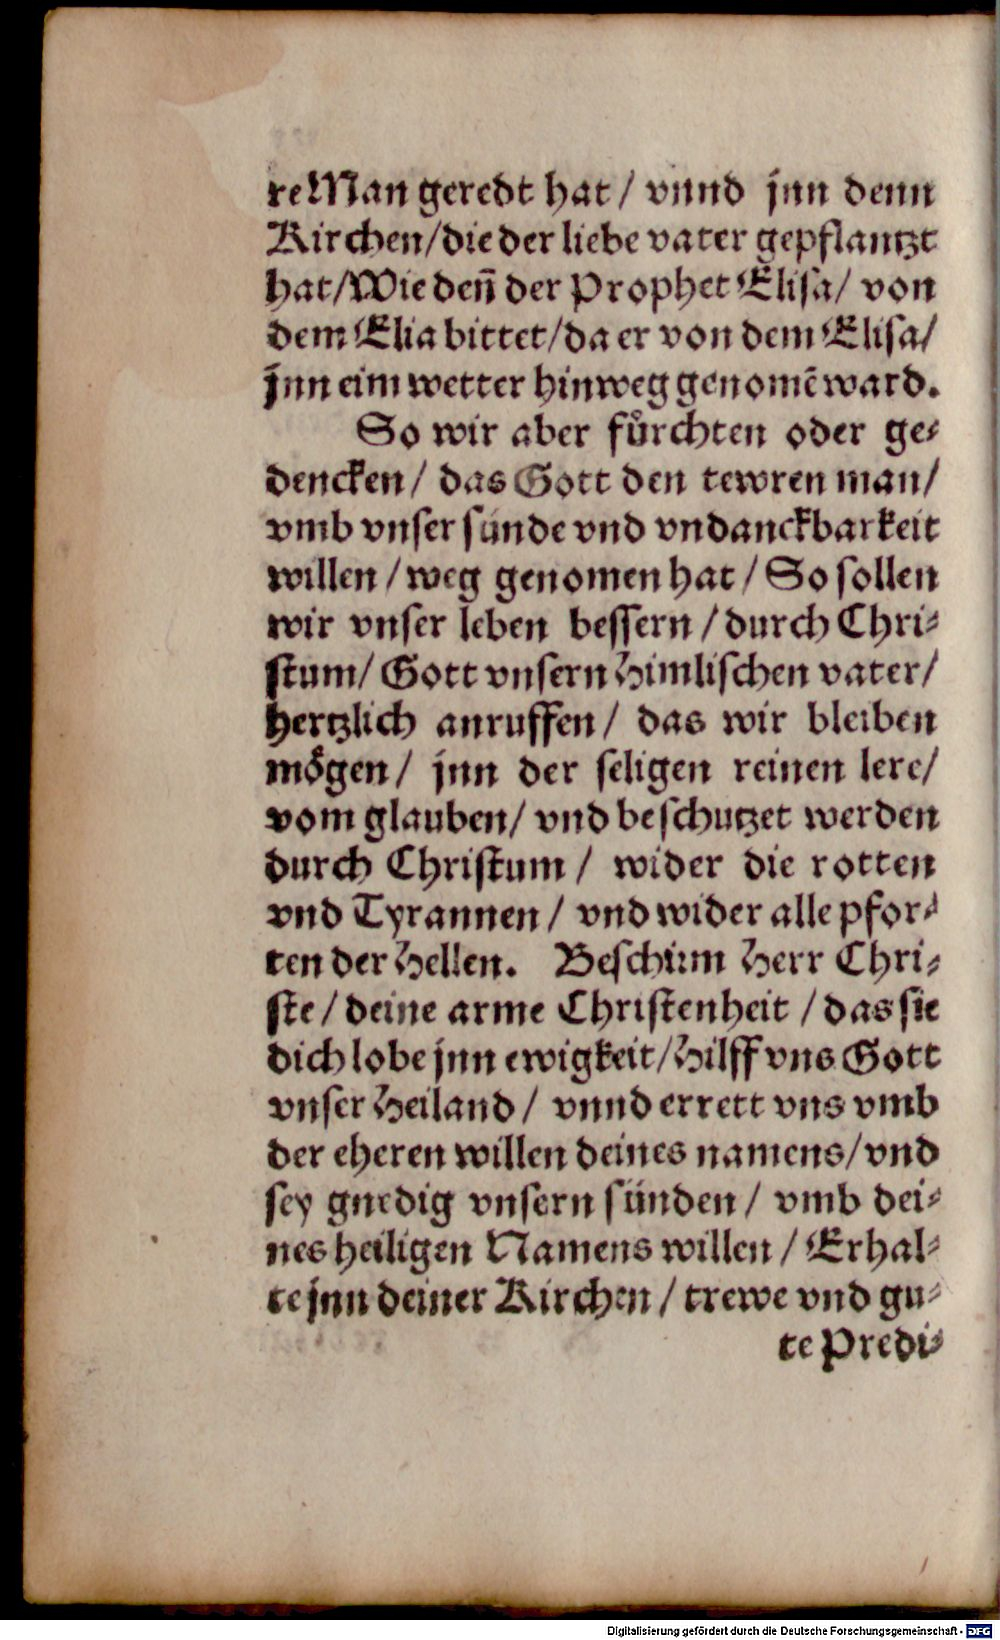 re Man geredt hat / vnnd jnn denn
Kirchen / die der liebe vater gepflantzt
hat / Wie deñ der Prophet Elisa / von
dem Elia bittet / da er von dem Elisa /
jnn eim wetter hinweg genomē ward.
So wir aber fuͤrchten oder ge⸗
dencken / das Gott den tewren man /
vmb vnser sünde vnd vndanckbarkeit
willen / weg genomen hat / So sollen
wir vnser leben bessern / durch Chri⸗
stum / Gott vnsern Himlischen vater /
hertzlich anruffen / das wir bleiben
moͤgen / jnn der seligen reinen lere /
vom glauben / vnd beschutzet werden
durch Christum / wider die rotten
vnd Tyrannen / vnd wider alle pfor⸗
ten der Hellen. Beschirm Herr Chri⸗
ste / deine arme Christenheit / das sie
dich lobe jnn ewigkeit / Hilff vns Gott
vnser Heiland / vnnd errett vns vmb
der eheren willen deines namens / vnd
sey gnedig vnsern sünden / vmb dei⸗
nes heiligen Namens willen / Erhal⸗
te jnn deiner Kirchen / trewe vnd gu⸗
te Predi⸗
Digitalisierung gefördert durch die Deutsche Forschungsgemeinschaft - DFG